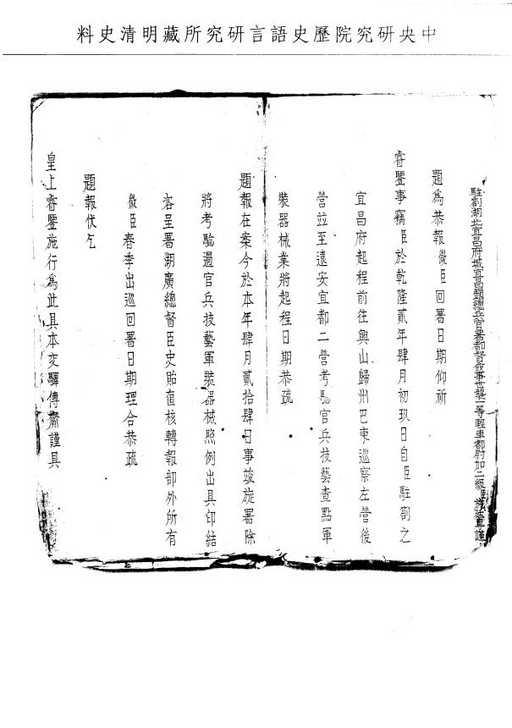 中央研究院歷史語言研究所藏明清史料
駐劄湖北宜昌府城宜昌鎮總兵官署都督僉事世襲一等輕車都尉加二級謹
題為恭報微臣回署日期仰祈
睿鑒事竊臣於乾隆貳年肆月初玖日自臣駐劄之
宜昌府起程前往興山歸州巴東巡察左營後
營並至遠安宜都二營考騐官兵技藝查點軍
裝器械業將起程日期恭疏
題報在案今於本年肆月貳拾肆日事竣旋署除
將考騐過官兵技藝軍裝器械照例出具印結
咨呈署湖廣總督臣史貽直核轉報部外所有
微臣春季出巡回署日期理合恭疏
題報伏乞
皇上睿鑒施行為此具本交驛傳齎謹具